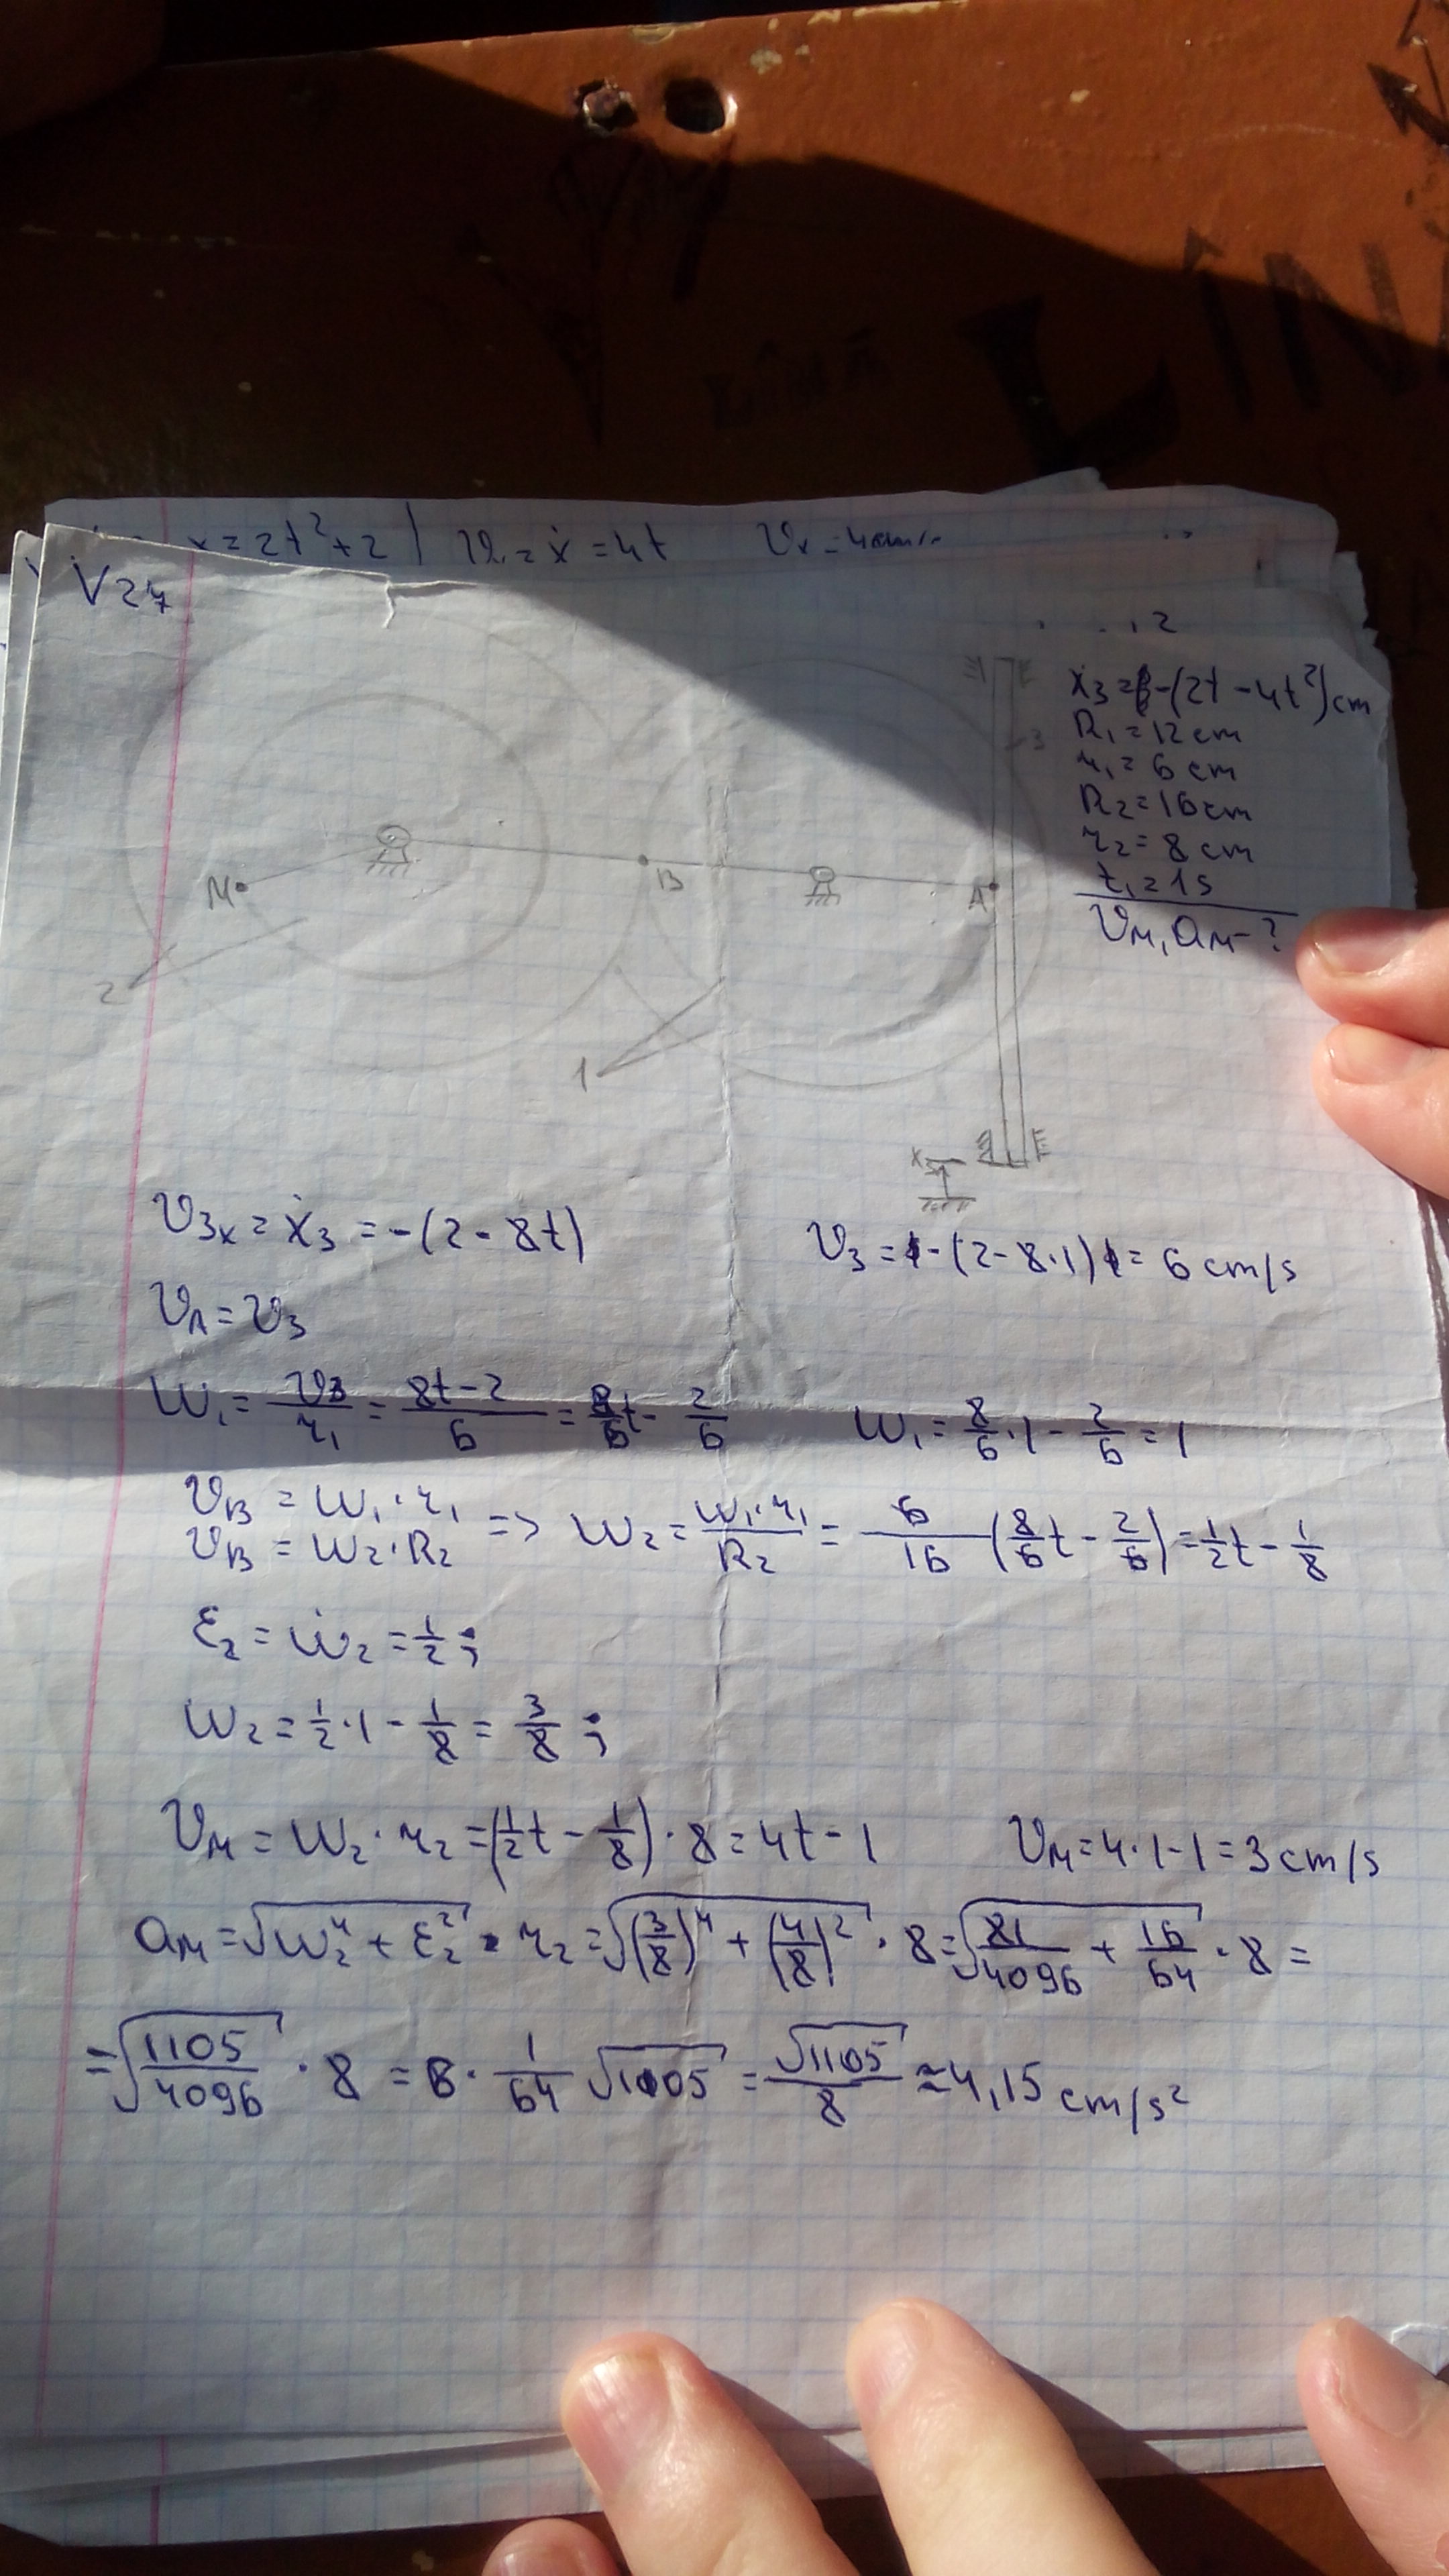 x = 2t² + 2 | = ẋ = 4t
V27
x₃ = -(2t - 4t²) cm
R₁ = 12 cm
r₁ = 6 cm
R₂ = 16 cm
r₂ = 8 cm
t₁ = 1 s
V_M, a_M - ?
3
M
B
A
2
1
x₃
V₃ₓ = ẋ₃ = -(2 - 8t) V₃ = -(2 - 8·1) = 6 cm/s
V_A = V₃
ω₁ = V₃/r₁ = (8t - 2)/6 = 8/6 t - 2/6 ω₁ = 8/6·1 - 2/6 = 1
V_B = ω₁·r₁
V_B = ω₂·R₂ => ω₂ = ω₁·r₁/R₂ = 6/16 (8/6 t - 2/6) = 1/2 t - 1/8
ε₂ = ω̇₂ = 1/2 ;
ω₂ = 1/2·1 - 1/8 = 3/8 ;
V_M = ω₂·r₂ = (1/2 t - 1/8)·8 = 4t - 1 V_M = 4·1 - 1 = 3 cm/s
a_M = √(ω₂⁴ + ε₂²) · r₂ = √((3/8)⁴ + (4/8)²) · 8 = √(81/4096 + 16/64) · 8 =
= √(1105/4096) · 8 = 8 · 1/64 √1105 = √1105/8 ≈ 4,15 cm/s²